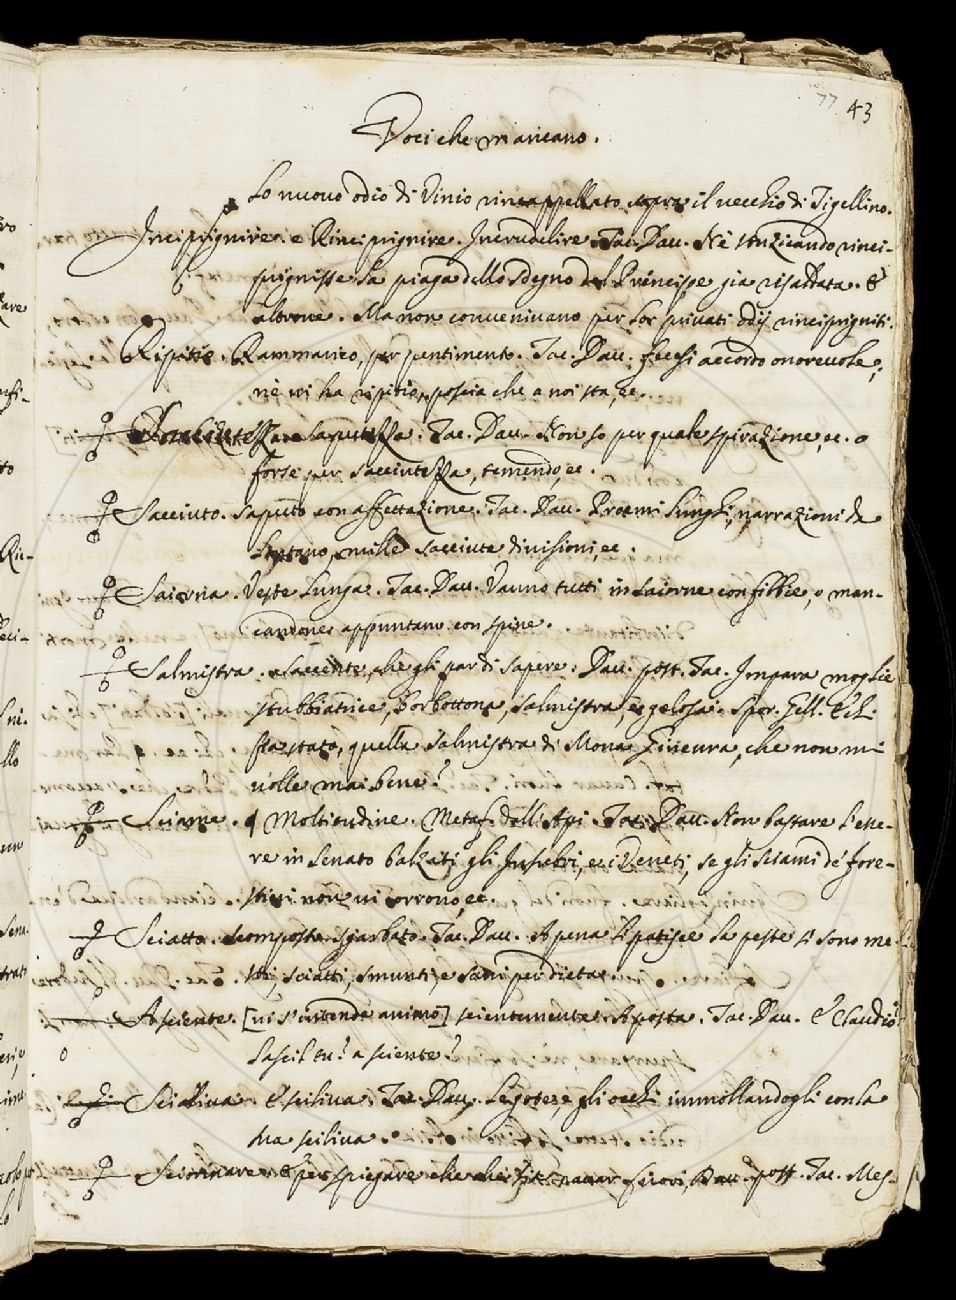 77 43
Voci che mancano.
Lo nuovo odio di Vinio rincappellato sopra il vecchio di Tigellino.
Inciprignire e Rinciprignire. Incrudelire. Tac. Dav. Nè stuzicando rinci-
prignisse la piaga dello sdegno del Principe gia risaldata. E
altrove. Ma non convenivano per lor privati odij rinciprigniti.
Ripitio. Rammarico, per pentimento. Tac. Dav. fecesi accordo onorevole;
nè vi ha ripitio, poscia che a noi sta, ec.
saputezza. Tac. Dav. Non so per quale spirazione, ec. o
forse per sacciutezza, temendo, ec.
Sacciuto. saputo con affettazione. Tac. Dav. Proemi lunghi, narrazioni da
lontano, mille sacciute divisioni, ec.
Saiorna. Veste lunga. Tac. Dav. Vanno tutti in saiorne con fibbie, o man-
candone, appuntano con spine.
Salmistra. saccente, che gli par di sapere. Dav. post. Tac. Impara moglie
stubbiatrice, Borbottona, salmistra, e gelosa. Spor. Gell. E ch'
sta stato, quella salmistra di Mona Ginevra, che non mi
volle mai bene?
Sciame. q Moltitudine. Metaf. dall'Api. Tac. Dav. Non bastare l'esse-
re in Senato balzati gli Insubri, e i Veneti, se gli sciami de' fore-
stieri non vi corrono, ec.
Sciatto. scomposto. sgarbato. Tac. Dav. Apena li patisce la peste si sono me
sti, sciatti, smunti, e sani per dieta.
A sciente. [vi s'intende animo] scientemente. Aposta. Tac. Dav. E Claudio?
lascil tu? a sciente?
Scialiva. E sciliva. Tac. Dav. Le gote, e gli occhi immollandogli con la
sua sciliva.
Sciorinare. E per spiegare che che sia, cavar fuori, Dav. post. Tac. Mes-